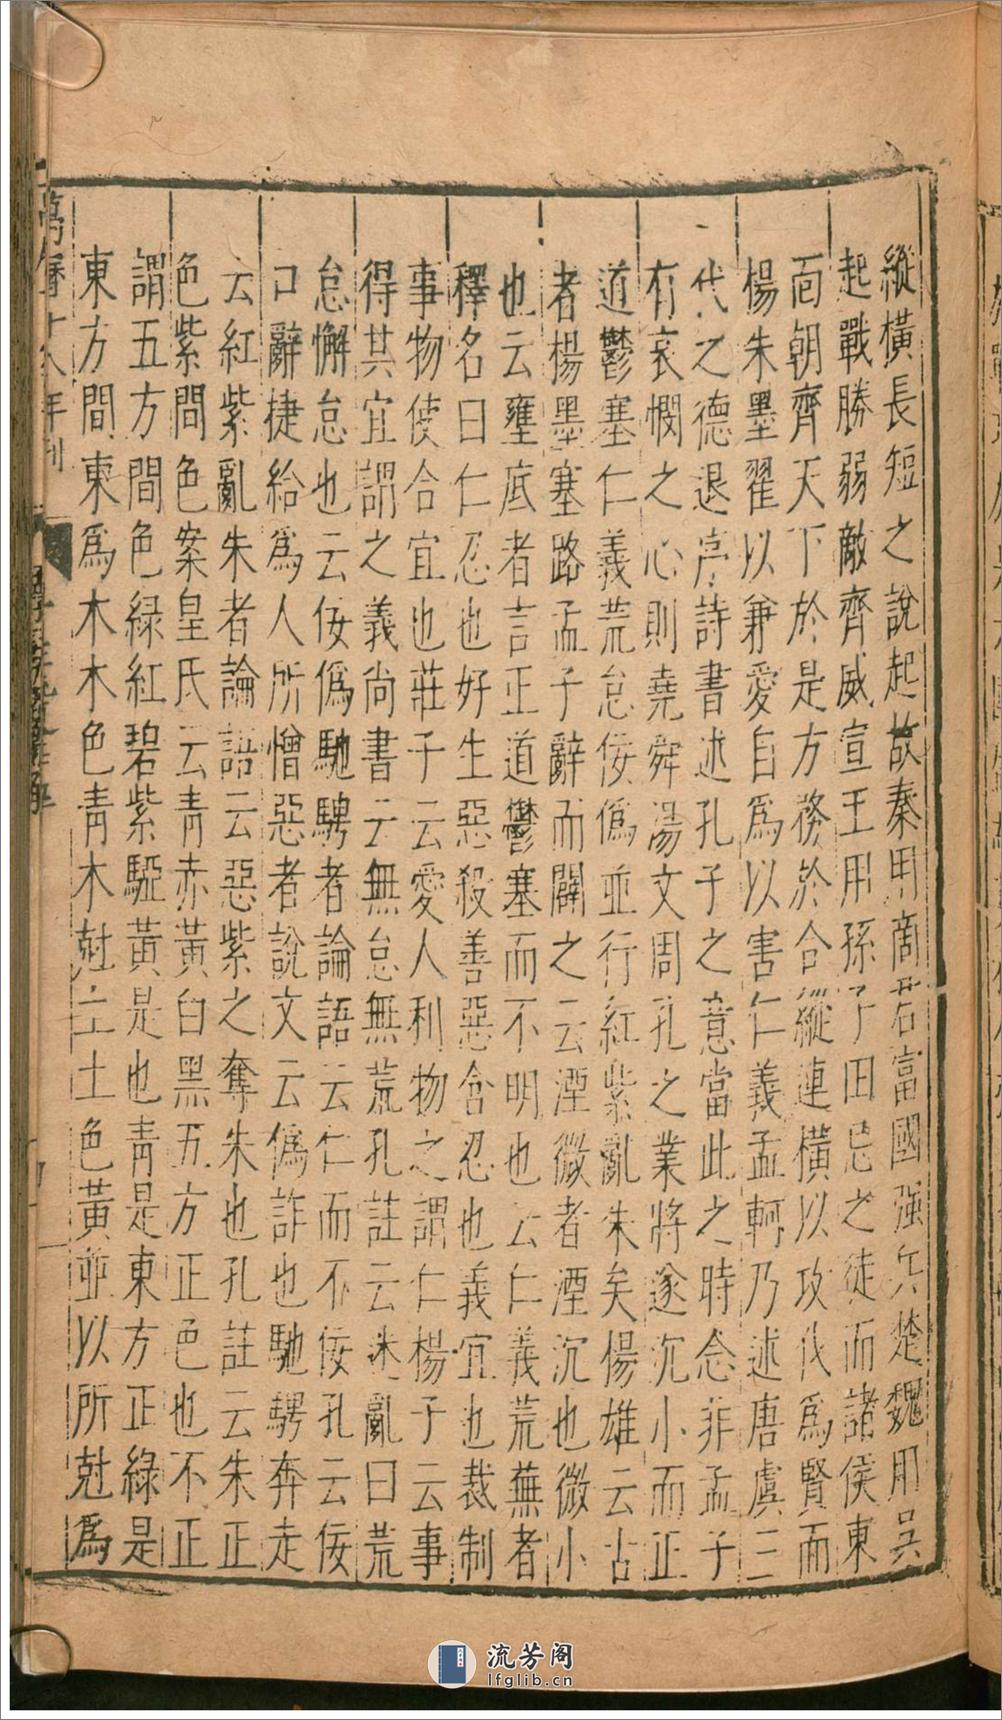 縱橫長短之說起故秦用商君富國强兵楚魏用吴
起戰勝弱敵齊威宣王用孫子田忌之徒而諸侯東
靣朝齊天下於是方務於合縱連橫以攻伐爲賢而
楊朱墨翟以兼愛自爲以害仁義孟軻乃述唐虞三
代之德退序詩書述孔子之意當此之時念非孟子
有哀憫之心則堯舜湯文周孔之業將遂沉小而正
道鬱塞仁義荒怠佞僞並行紅紫亂朱矣楊雄云古
者楊墨塞路孟子辭而闢之云湮微者湮沉也微小
也云壅底者言正道鬱塞而不明也云仁義荒蕪者
釋名曰仁忍也好生惡殺善惡含忍也義宜也裁制
事物使合宜也莊子云愛人利物之謂仁楊子云事
得其宜謂之義尚書云無怠無荒孔註云迷亂曰荒
怠懈怠也云佞僞馳騁者論語云仁而不佞孔云佞
口辭捷給爲人所憎惡者說文云僞詐也馳騁奔走
云紅紫亂朱者論語云惡紫之奪朱也孔註云朱正
色紫間色案皇氏云青赤黃白黑五方正色也不正
謂五方間色綠紅碧紫駵黃是也青是東方正綠是
東方間東爲木木色青木尅土土色黃並以所尅爲
萬曆十八年刊